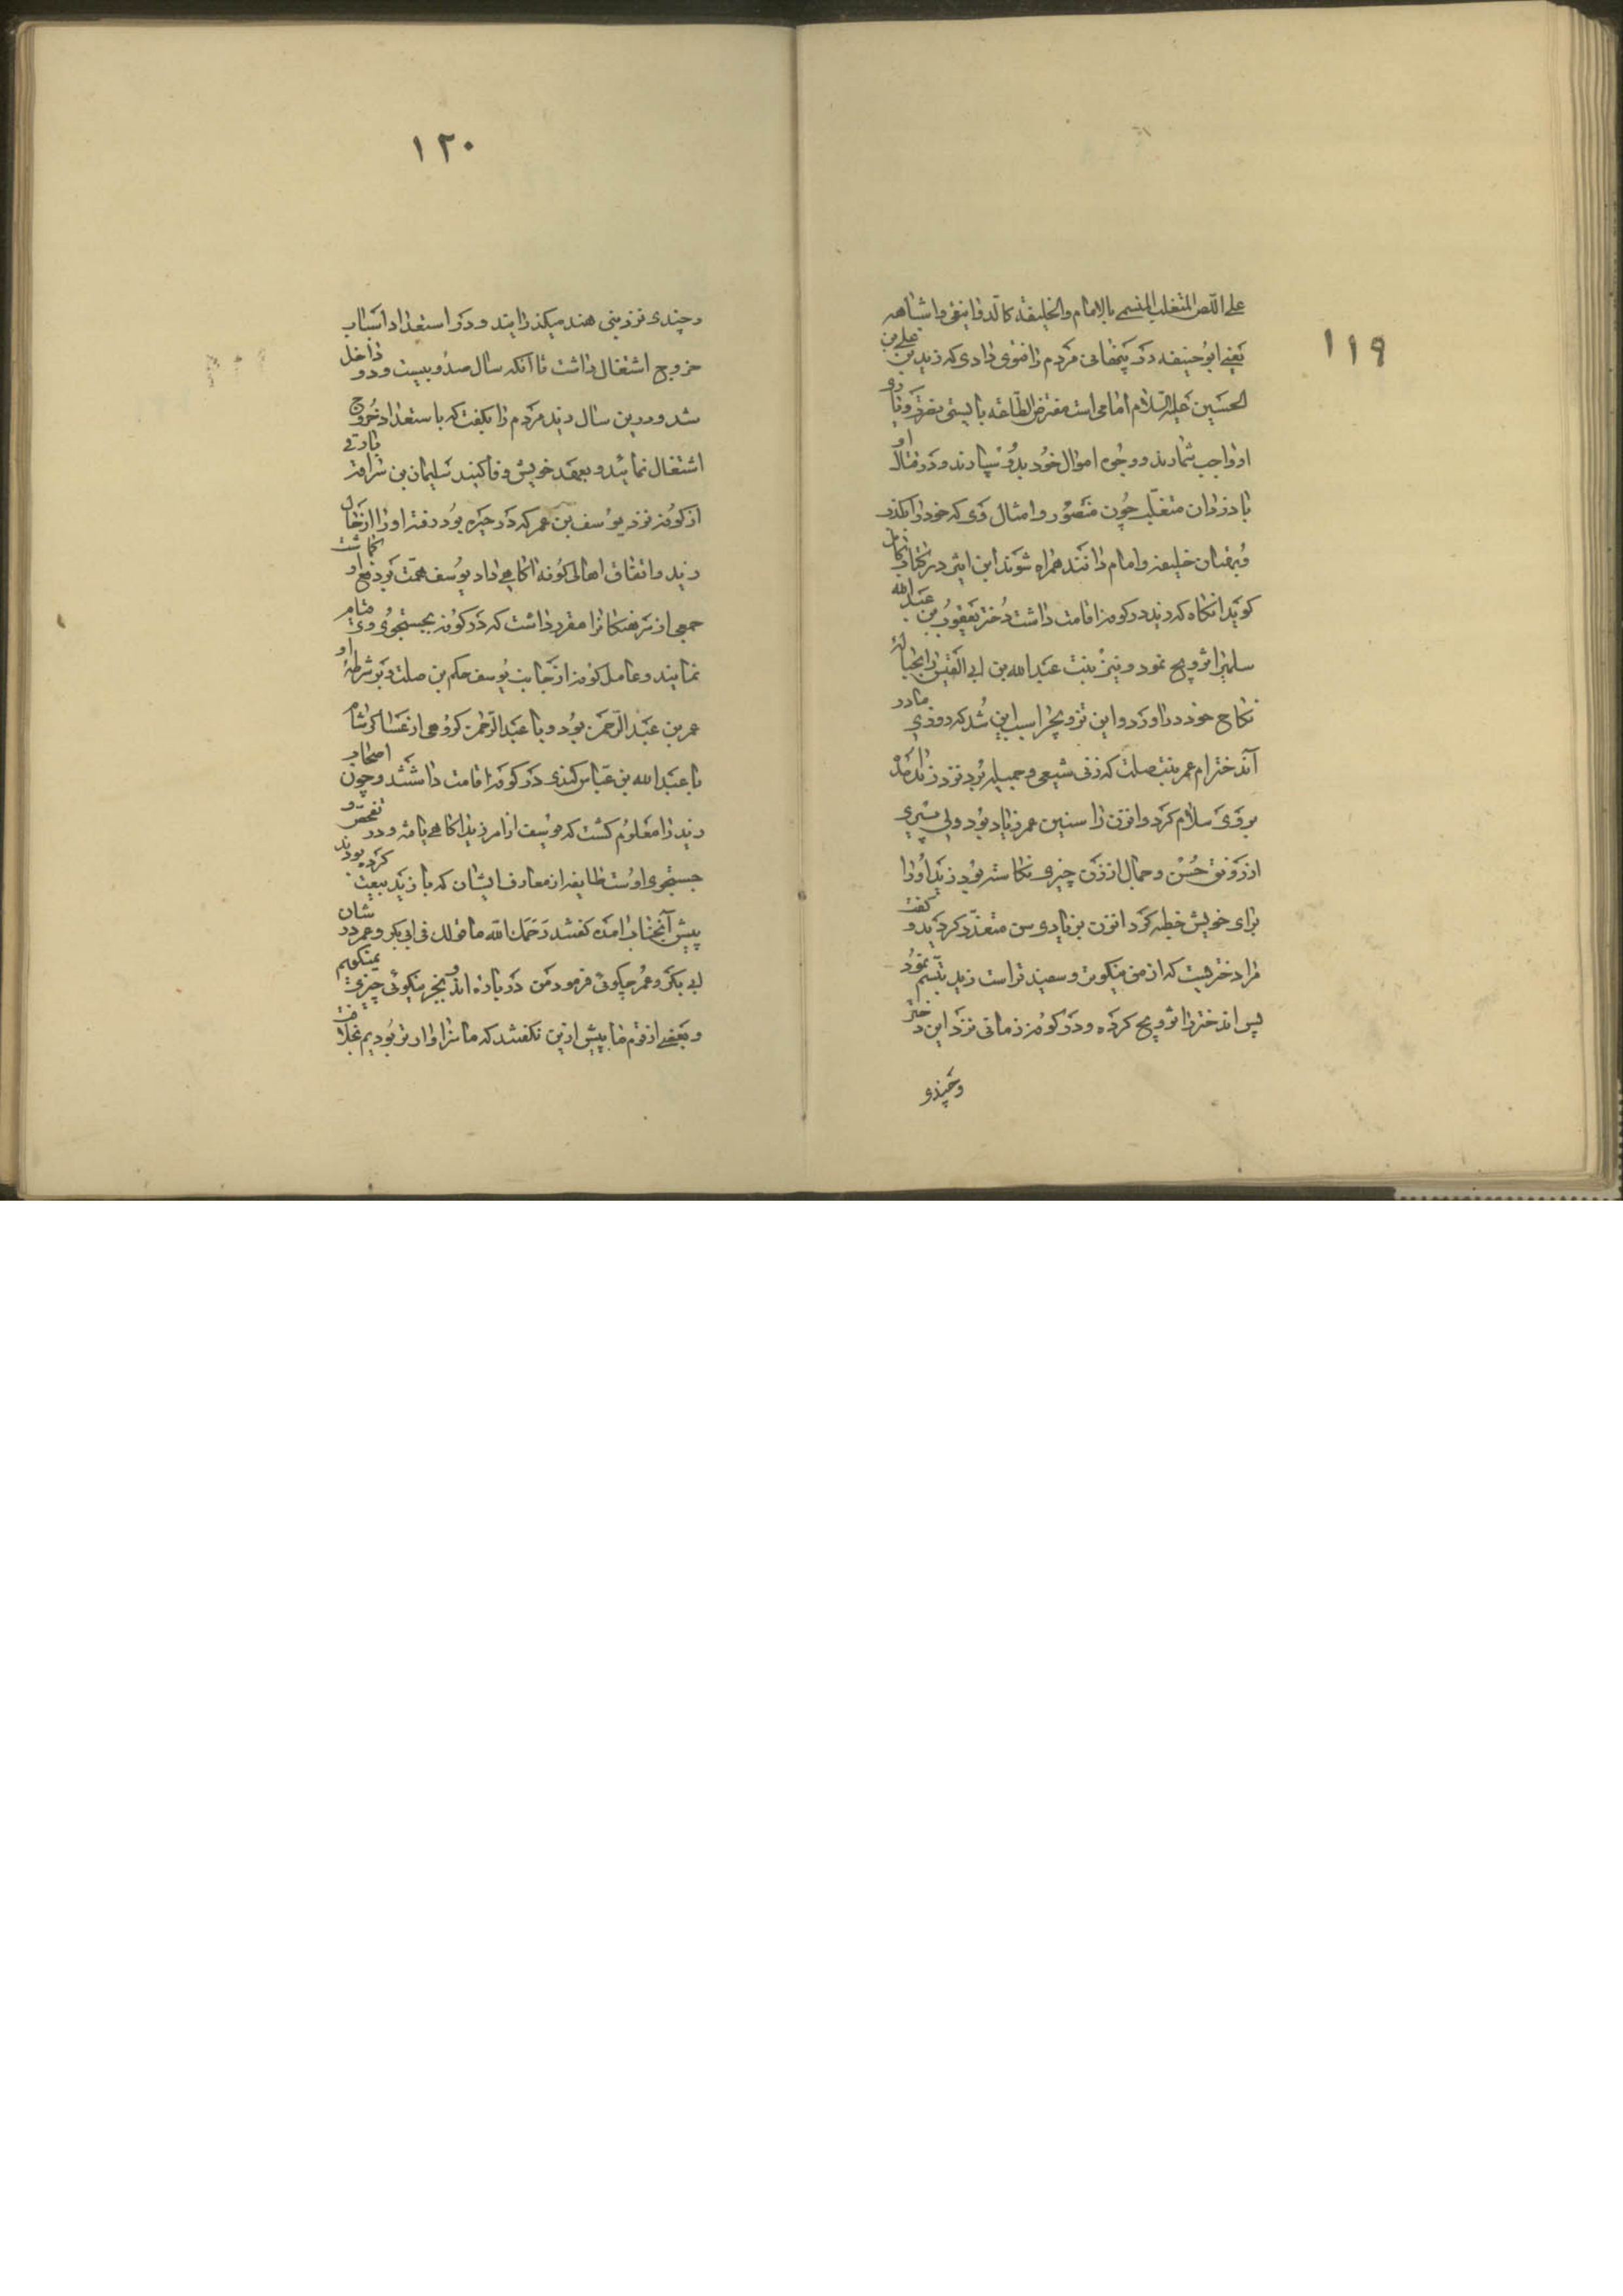 ١١٩
على اللّص المتغلب المتسمى بالامام والخليفة كالدوانيقى واشباهه
يعنى ابو حنيفه در پنهانى مردم را فتوى دادى كه زيد بن على بن
الحسين عليه السلام امامى است مفترض الطاعه بايستى نصرت وى را
واجب شمارند و وجوه اموال خود بدو سپارند و در قتال او
با دزدان متغلب چون منصور و امثال وى كه خود را
خليفه و امام دانند همراه شوند ابن اثير در كتاب كامل
كويد انكاه كه زيد در كوفه اقامت داشت دختر يعقوب بن عبد الله
سلمى را تزويج نمود و نيز بنت عبد الله بن ابى القيس را بحباله
نكاح خود در اورد و اين تزويج را سبب اين شد كه روزى مادر
آندختر ام عمر بنت صلت كه زنى شيعى و جميله بود نزد زيد آمده
بر وى سلام كرد و انزن را سنين عمر زياد بود ولى پيرى
از رونق حسن و جمال انزن چيزى نكاسته بود زيد او را
براى خويش خطبه كرد انزن بزيادى سن متعذر كرديد و كفت
مرا دختريست كه از من نيكوتر و سفيدتر است زيد تبسم نمود
پس اندختر را تزويج كرده و در كوفه زمانى نزد اين دختر
وچندى
١٢٠
وچندى نزد بنى هند ميكذرانيد و در استعداد اسباب
خروج اشتغال داشت تا آنكه سال صد و بيست و دو داخل
شد و در اين سال زيد مردم را بكفت كه باستعداد خروج
اشتغال نمايند و بعهد خويش وفا كنيد سليمان بن سراقه بارقى
از كوفه نزد يوسف بن عمر كه در حيره بود رفته او را از حال
زيد و اتفاق اهالى كوفه اكاهى داد يوسف همت بر دفع او كماشت
جمعى از سرهنكانرا مقرر داشت كه در كوفه بجستجوى وى قيام
نمايند و عامل كوفه از جانب يوسف حكم بن صلت و بر شرطه او
عمر بن عبد الرحمن بود و با عبد الرحمن كروهى از عساكر شام
با عبد الله بن عباس كندى در كوفه اقامت داشتند و چون اصحاب
زيد را معلوم كشت كه يوسف از امر زيد اكاهى يافته و در تفحص و
جستجوى اوست طايفه از معارف ايشان كه با زيد بيعت كرده بودند
پيش آنجناب امده كفتند رحمك الله ما قولك فى ابى بكر و عمر در شان
ابى بكر و عمر چكوئى فرمود من در باره اندو بجز نيكوئى چيزى نميكويم
و بعضى از قوم ما پيش ازين نكفتند كه ما سزاوارتر بوديم بخلافت